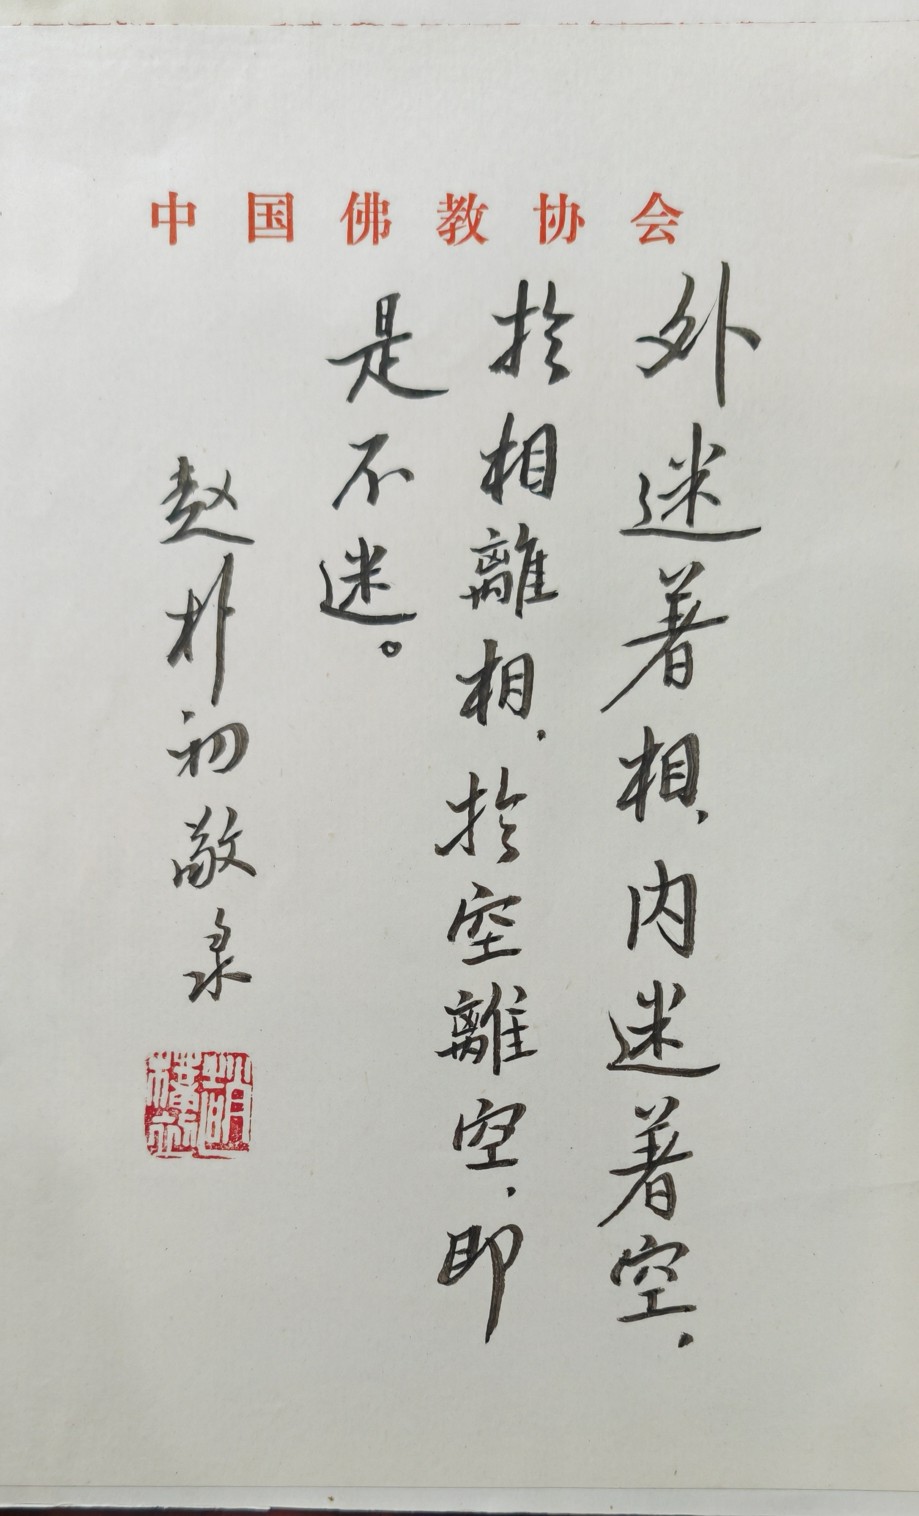 中国佛教协会
外迷著相，内迷著空，
於相離相，於空離空，即
是不迷。
赵朴初敬录
趙樸初